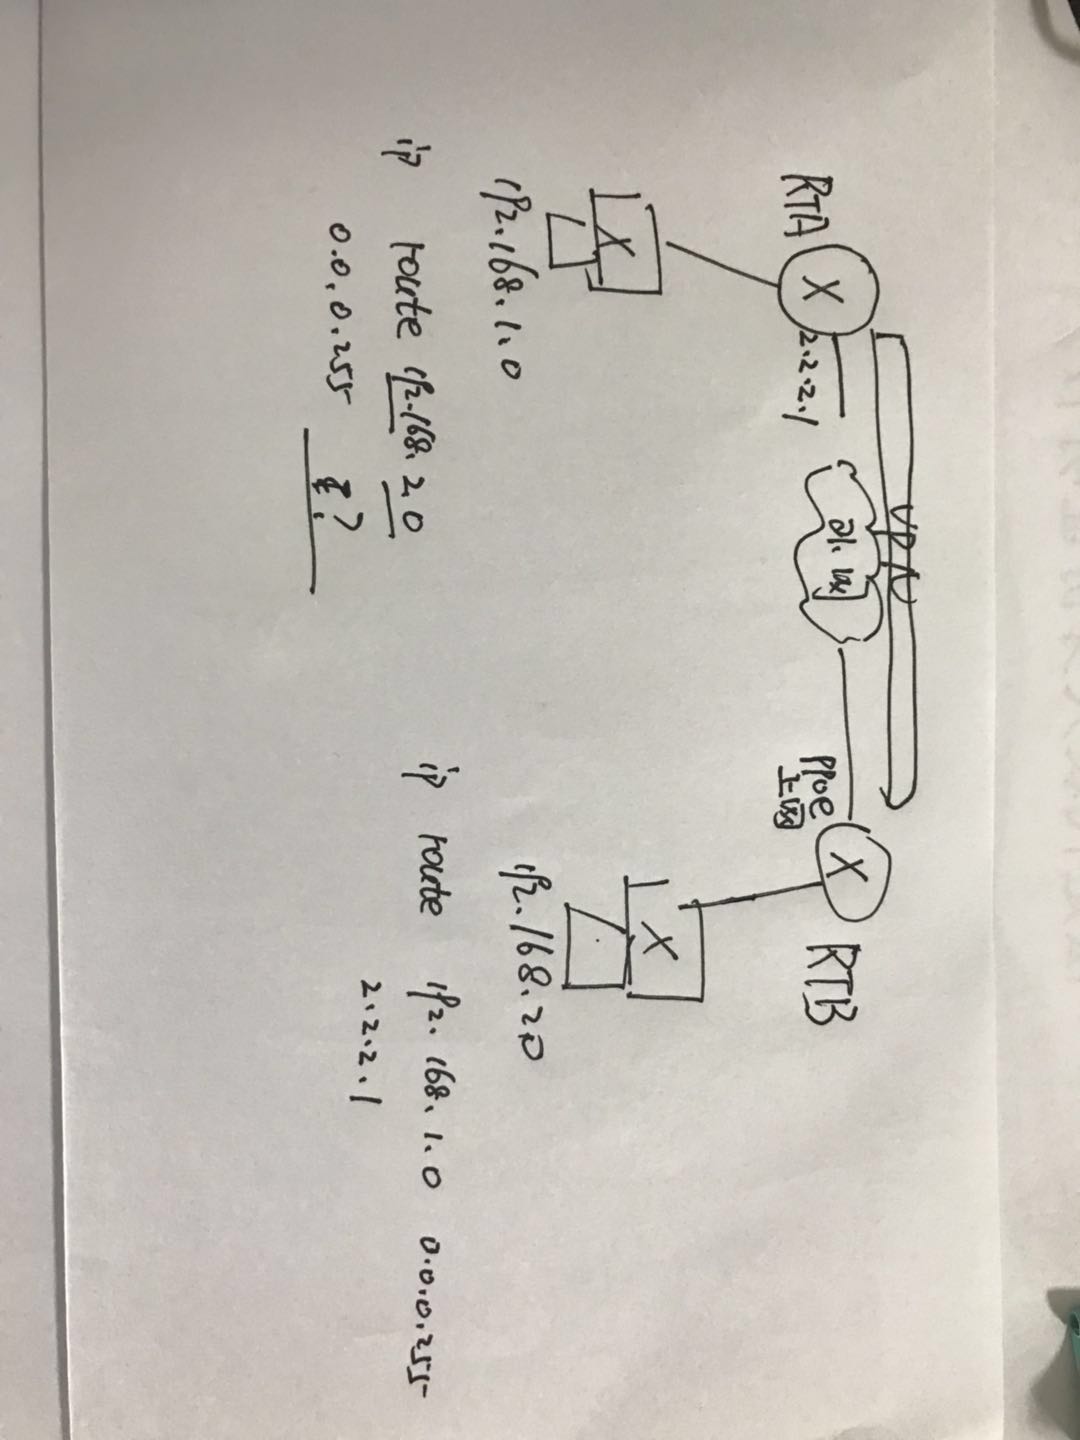 VPN
RTA
X
2.2.2.1
外网
PPoE
上网
X
RTB
X
X
192.168.1.0
192.168.2.0
ip route 192.168.2.0
0.0.0.255 ?
ip route 192.168.1.0 0.0.0.255
2.2.2.1